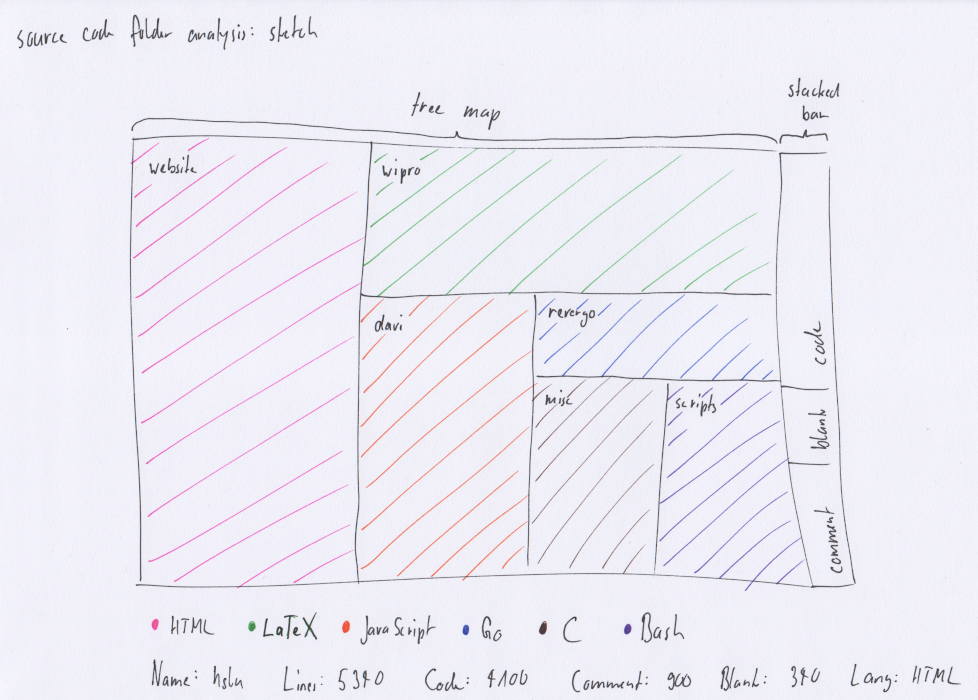 source code folder analysis: sketch
stacked
bar
tree map
website
wipro
davi
revergo
misc
scripts
code
blank
comment
HTML LaTeX JavaScript Go C Bash
Name: hslu Lines: 5340 Code: 4100 Comment: 900 Blank: 340 Lang: HTML